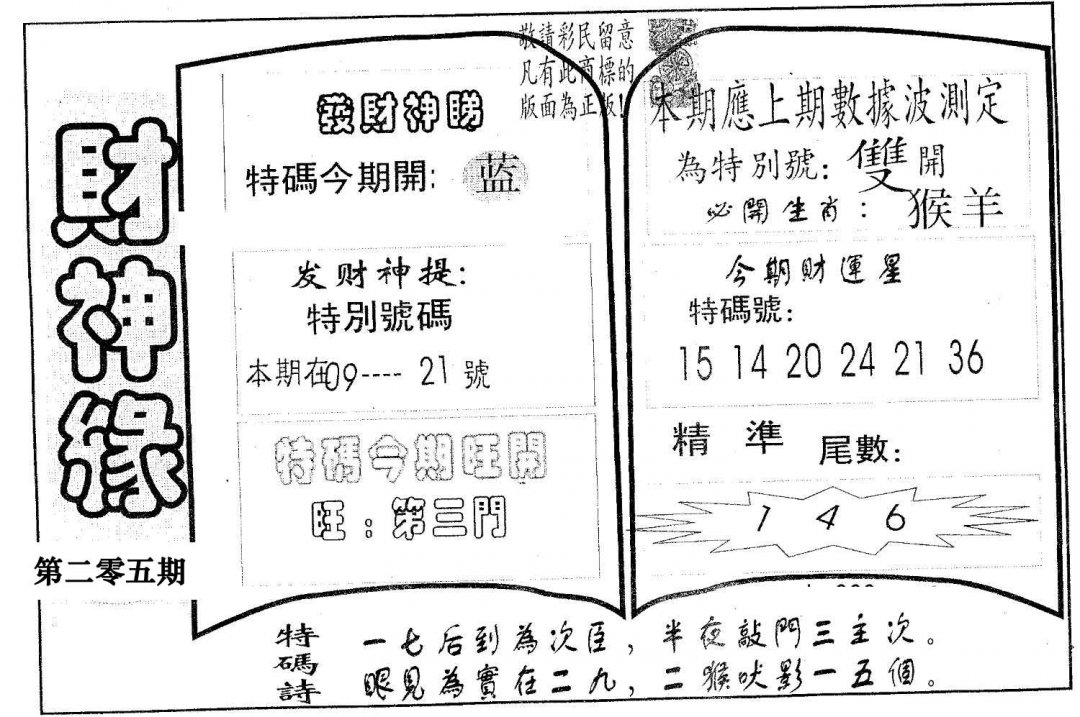 財神緣
第二零五期
敬請彩民留意
凡有此商標的
版面為正版!
發財神睇
特碼今期開: 蓝
发财神提:
特別號碼
本期在09---- 21 號
特碼今期旺開
旺: 第三門
本期應上期數據波測定
為特別號: 雙開
必開生肖: 猴羊
今期財運星
特碼號:
15 14 20 24 21 36
精準 尾數:
1 4 6
特碼詩
一七后到為次臣,半夜敲門三主次。
眼見為實在二九,二猴吠影一五個。